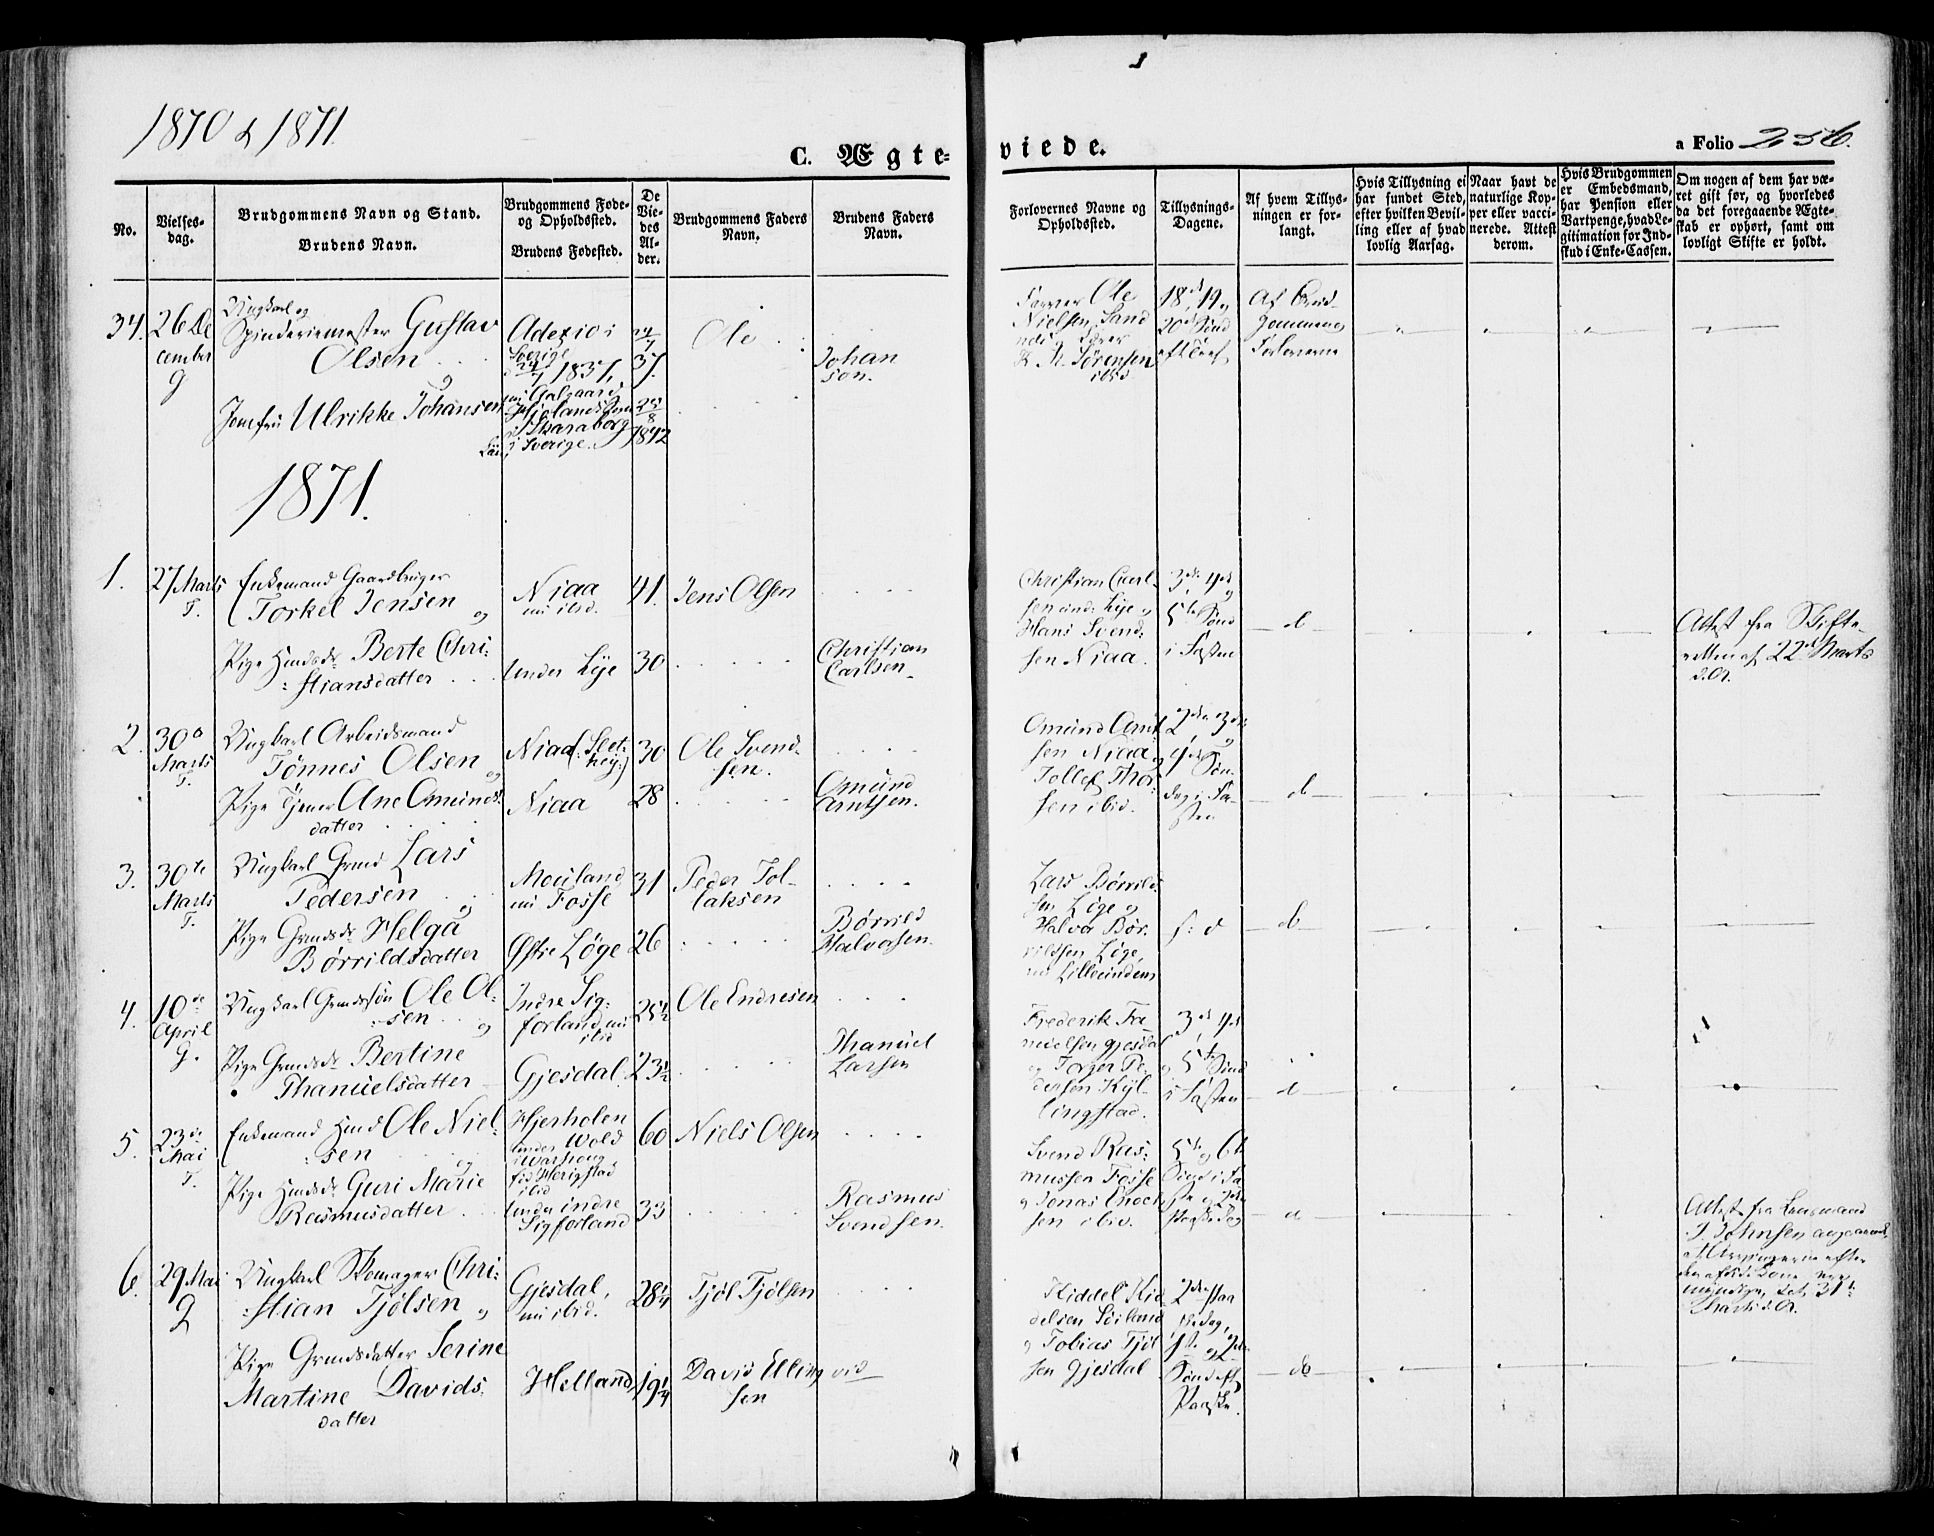 1870 & 1871.
C. Ægte-
viede.
a Folio 256.
No.
Vielses-
dag.
Brudgommens Navn og Stand.
Brudens Navn.
Brudgommens Føde-
og Opholdssted.
Brudens Fødested.
De
Vie-
des
Al-
der.
Brudgommens Faders
Navn.
Brudens Faders
Navn.
Forlovernes Navne og
Opholdssted.
Tillysnings-
Dagene.
Af hvem Tillys-
ningen er for-
langt.
Hvis Tillysning ei
har fundet Sted,
efter hvilken Bevil-
ling eller af hvad
lovlig Aarsag.
Naar havt de
naturlige Kop-
per eller vacci-
nerede. Attest
derom.
Hvis Brudgommen
er Embedsmand,
har Pension eller
Vartpenge, hvad Le-
gitimation for Ind-
skud i Enke-Cassen.
Om nogen af dem har væ-
ret gift før, og hvorledes
da det foregaaende Ægte-
skab er ophørt, samt om
lovligt Skifte er holdt.
34.
26 De
cember
G
Ungkarl og
Spinderiemester Gustav
Olsen
og
Jomfru Ulrikke Johansen
Sverige
24/7 1837,
i Sverige.
24/7
37.
25/8
1842
Ole
Johan
son.
Ole
Nielsen Sand
Sørensen
ibid.
18de, 19 og
20de Sønd
eft Tref.
Af Brud-
gommens
Forloverne
1871.
1.
27 Marts
T.
Enkemand Gaardbruger
Torkel Jensen og
Pige Huusds Berte Chri-
stiansdatter
Niaa
nu ibid.
under Lye
41.
30
Jens Olsen
Christian
Carlsen
Christian Carl-
sen und: Lye og
Hans Svend-
sen Niaa.
3de, 4de og
5te Sønd
i Fasten
d
Attest fra Skifte-
retten af 22de Marts
d. A.
2.
30te
Marts
T.
Ungkarl Arbeidsmand
Tønnes Olsen og
Pige Tjener Ane Omunds-
datter
Niaa
Niaa
30
28
Ole Svend-
sen.
Omund
Arntsen.
Omund Arnt-
sen Niaa og
Tollef Thor-
sen ibid.
2den, 3die og
4de Søn-
dag i Fa-
sten
d
3.
30te
Marts
T.
Ungkarl Grmd Lars
Pedersen og
Pige Grmdsdr Helga
Børrildsdatter
Moiland
nu Fosse
Østre Løge
31
26
Peder Tol-
laksen
Børrild
Halvorsen.
Lars Børrild-
sen Løge og
Halvor Bør-
rildsen Løge,
f: d
d
4.
10de
April
G.
Ungkarl Grmdssøn Ole Ol-
sen og
Pige Grmdsdr Bertine
Thanuelsdatter
Indre Sig-
forland, nu
ibid
Gjesdal.
25 1/2
23 1/2
Ole Endresen
Thanuel
Larsen
Frederik Fa-
nuelsen Gjesdal
og Torger Pe-
dersen Kyl-
lingstad.
3de, 4de
og 5te Sønd
i Fasten
d
5.
23de
Mai
T.
Enkemand Huusmd Ole Niel-
sen og
Pige Huusdr Guri Marie
Rasmusdatter
Hjerholen
under Wold
ibid
under indre
Sigforland
60
33
Niels Olsen
Rasmus
Svendsen.
Svend Ras-
mussen Fosse
og Jonas Enoch-
sen ibid.
5te og 6te
Sønd i Fa-
sten og 2den
Paaskedag
d
Attest fra Lensmand
31te
Marts d. A.
6.
29 Mai
G
Ungkarl Skomager Chri-
stian Tjølsen og
Pige Grmdsdatter Serine
Martine Davids-
datter
Gjesdal,
nu ibid.
Helland
28 1/4
19 1/4
Tjøl Tjølsen
David Elling
sen
vid
Kiddel Kid
delsen Søiland
og Tobias Tjøl
sen Gjesdal
2den Paa
skedag,
1ste og 2den
Sønd eft
Paaske.
do